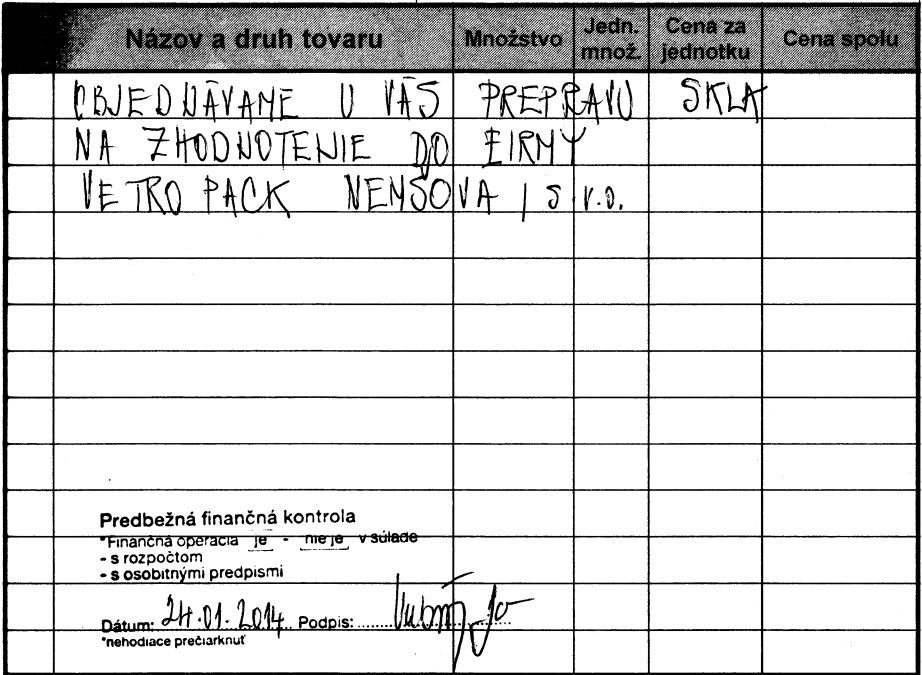 Názov a druh tovaru Množstvo Jedn. množ. Cena za jednotku Cena spolu
OBJEDNÁVAME U VÁS PREPRAVU SKLA
NA ZHODNOTENIE DO FIRMY
VETRO PACK NEMŠOVA, S.R.O.
Predbežná finančná kontrola
*Finančná operácia je - nie je v súlade
- s rozpočtom
- s osobitnými predpismi
Dátum: 24.01.2014 Podpis:
*nehodiace prečiarknuť